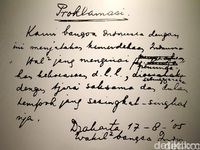 Proklamasi.
Kami bangsa Indonesia dengan
ini menjatakan kemerdekaan Indonesia.
Hal² jang mengenai
han kekoeasaan d.l.l.,
dengan tjara saksama dan dalam
tempoh jang sesingkat-singkat
nja.
Djakarta 17-8-'05
Wakil² bangsa Indo
detikcom